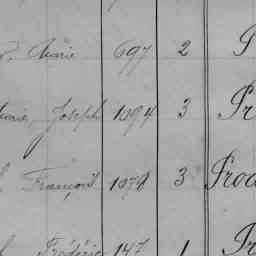 Marie 697 2 P
Joseph 1094 3 Pr
François 1078 3 Proc
Frédéric 147 1 Pr